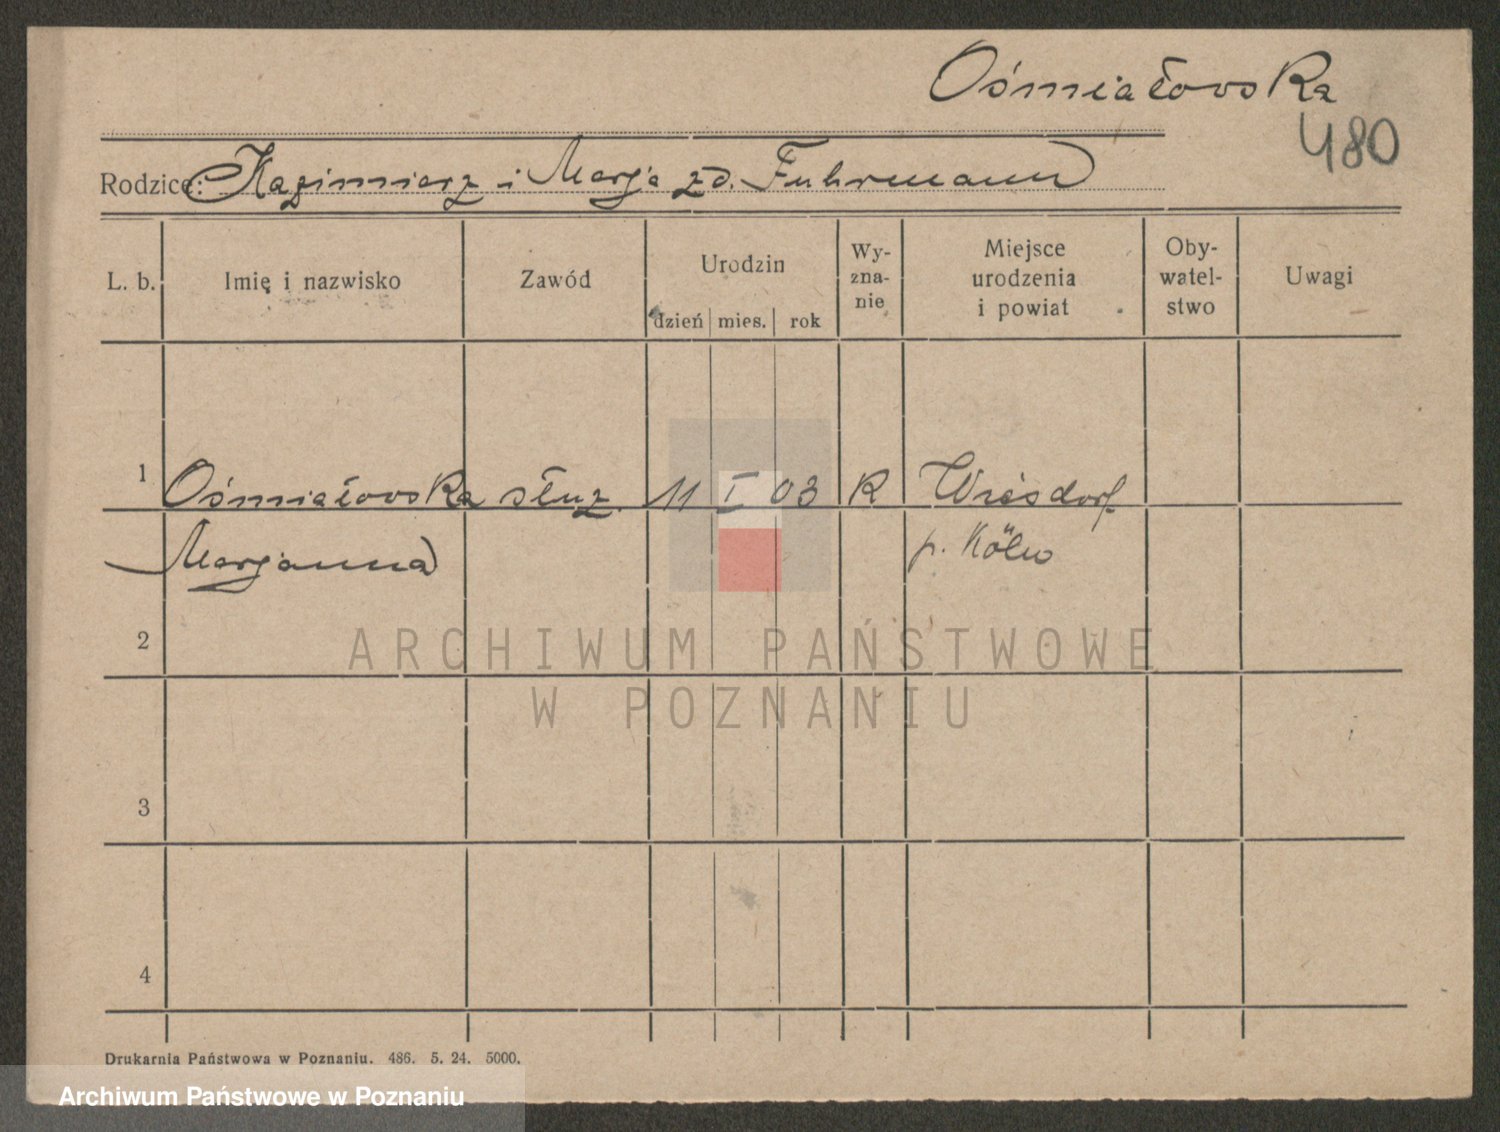 Ośmiałowska
480
Rodzice: Kazimierz i Marja zd. Fuhrmann
L. b. Imię i nazwisko Zawód Urodzin dzień mies. rok Wy-zna-nie Miejsce urodzenia i powiat Oby-watel-stwo Uwagi
1 Ośmiałowska służ. 11 I 03 R Wiesdorf
Marjanna p. Köln
2
ARCHIWUM PAŃSTWOWE
W POZNANIU
3
4
Drukarnia Państwowa w Poznaniu. 486. 5. 24. 5000.
Archiwum Państwowe w Poznaniu